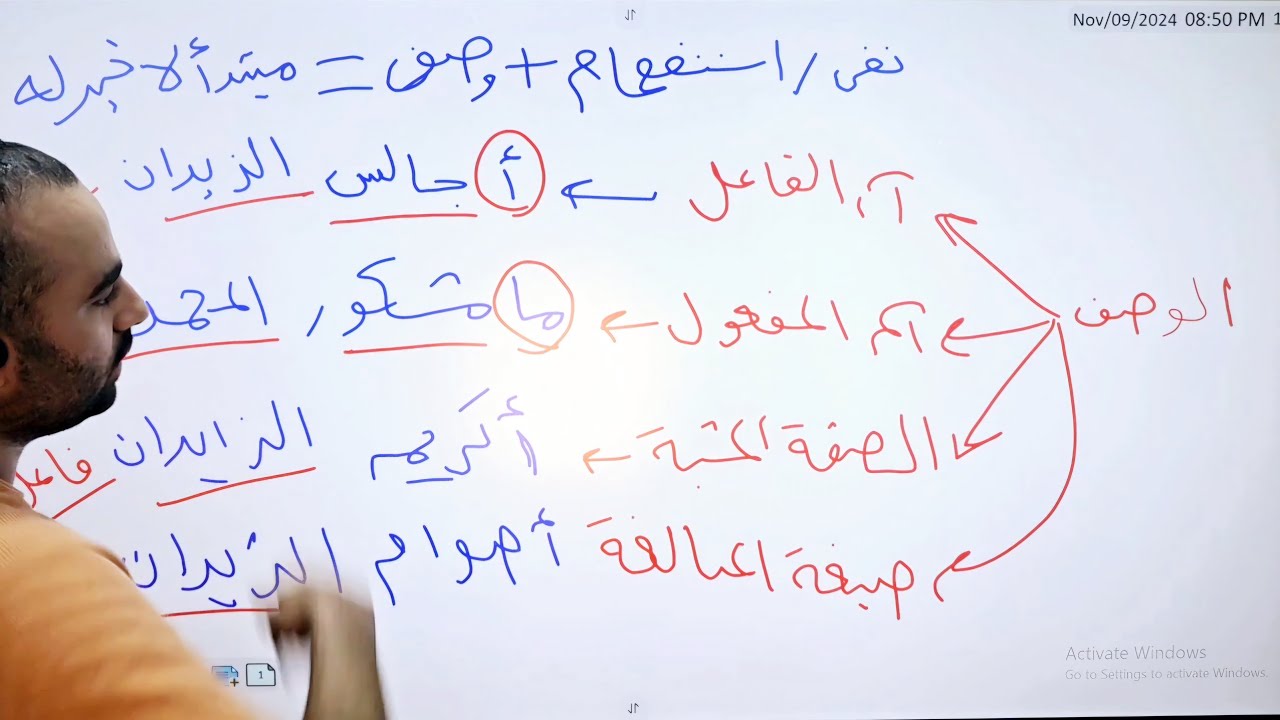 Nov/09/2024 08:50 PM 1
نفي / استفهام + وصف = مبتدأ لا خبر له
اسم الفاعل ← أ جالس الزيدان
الوصف
اسم المفعول ← ما مشكور
الصفة المشبهة ← أكريم الزايدان فاعل
صيغة المبالغة أصوام الزيدان
Activate Windows
Go to Settings to activate Windows.
1